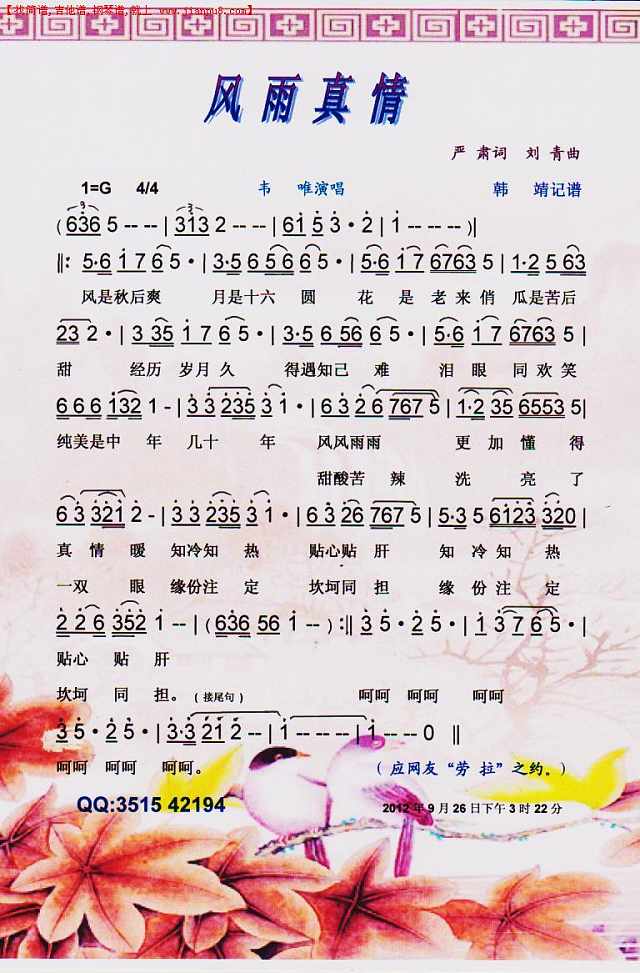 【找简谱,吉他谱,钢琴谱,就上 www.jianpu8.com】
风雨真情
严 肃词 刘 青曲
1=G 4/4 韦 唯演唱 韩 靖记谱
3 3
(636 5 -- -- | 313 2 -- -- | 61 5 3 · 2 | 1 -- -- -- )|
‖: 5·6 1 7 6 5 · | 3·5 6 5 6 6 | 5·6 1 7 6763 5 | 1·2 5 63
风是秋后爽 月是十六 圆 花 是 老 来 俏 瓜是苦后
23 2 · | 3 35 1 7 6 5 · | 3·5 6 56 6 5 · | 5·6 1 7 6763 5 |
甜 经历 岁月 久 得遇知己 难 泪 眼 同 欢 笑
6 6 6 132 1 - | 3 3 235 3 1 · | 6 3 2 6 767 5 | 1·2 35 6553 5|
纯美是中 年 几十 年 风风雨雨 更 加 懂 得
甜酸苦 辣 洗 亮 了
6 3 3 321 2 - | 3 3 235 3 1 · | 6 3 26 767 5 | 5·3 5 6123 320 |
真 情 暖 知冷知 热 贴心贴 肝 知 冷 知 热
一双 眼 缘份注 定 坎坷同 担 缘 份 注 定
2 2 6 352 1 -- | ( 636 56 1 -- ) :‖ 3 5 · 2 5 · | 1 3 7 6 5 |
贴心 贴 肝
坎坷 同 担。 ( 接尾句 ) 呵呵 呵呵 呵呵
3 5 · 2 5 · | 3·3 21 2 -- | 1 -- -- -- | 1 -- -- 0 ‖
呵呵 呵呵 呵呵。 ( 应网友“劳 拉”之约。)
QQ:3515 42194 2012 年 9 月 26 日下午 3 时 22 分